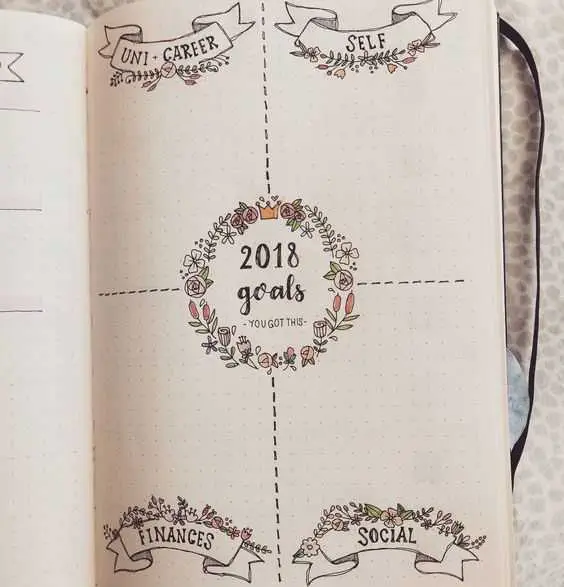 UNI · CAREER
SELF
2018
goals
- YOU GOT THIS -
FINANCES
SOCIAL